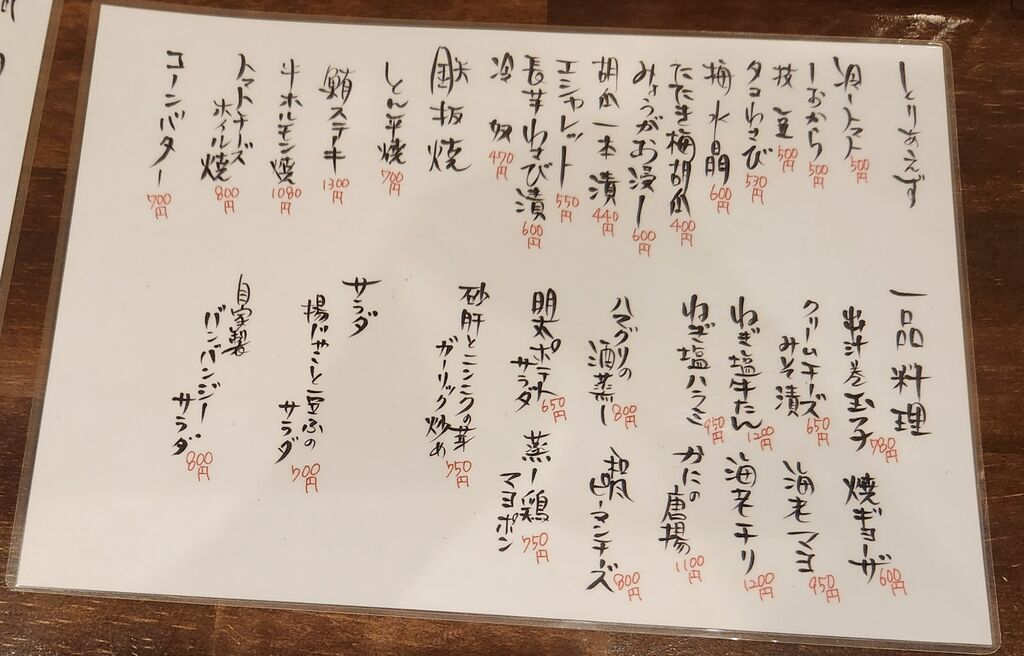 しとりあえず
冷しトマト 500円
しおから 500円
枝豆 500円
タコわさび 530円
梅水晶 600円
たたき梅胡瓜 400円
みょうがお浸し 600円
胡瓜一本漬 440円
エシャレット 550円
長芋わさび漬 600円
冷奴 470円
鉄板焼
とん平焼 700円
鮪ステーキ 1300円
牛ホルモン焼 1080円
トマトチーズ
ホイル焼 800円
コーンバター 700円
一品料理
出汁巻玉子 780円
焼ギョーザ 600円
クリームチーズ
みそ漬 650円
海老マヨ 950円
ねぎ塩牛たん 1200円
海老チリ 1200円
ねぎ塩ハラミ 950円
かにの唐揚 1100円
ハマグリの
酒蒸し 800円
ピーマンチーズ 800円
明太ポテト
サラダ 650円
蒸し鶏
マヨポン 750円
砂肝とニンニクの芽
ガーリック炒め 750円
サラダ
揚じゃこと豆ふの
サラダ 700円
自家製
バンバンジー
サラダ 800円